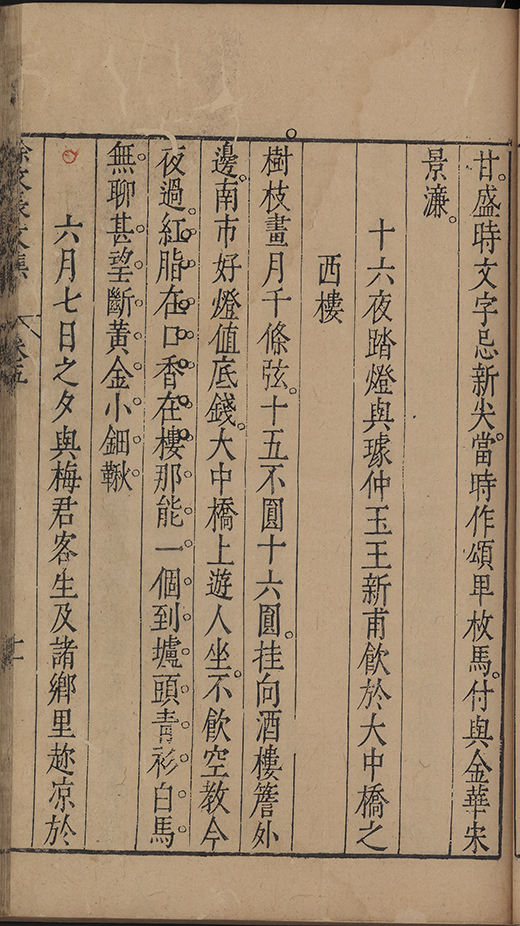 甘。盛時文字忌新尖。當時作頌卑枚馬。付與金華宋
景濂。
十六夜踏燈與璩仲玉王新甫飲於大中橋之
西樓
樹枝畫月千條弦。十五不圓十六圓。挂向酒樓簷外
邊。南市好燈值底錢。大中橋上遊人坐。不飲空教今
夜過。紅脂在口香在樓那能一個到壚頭青衫白馬
無聊甚望斷黃金小鈿鞦
六月七日之夕與梅君客生及諸鄉里趂凉於
徐文長文集 卷五